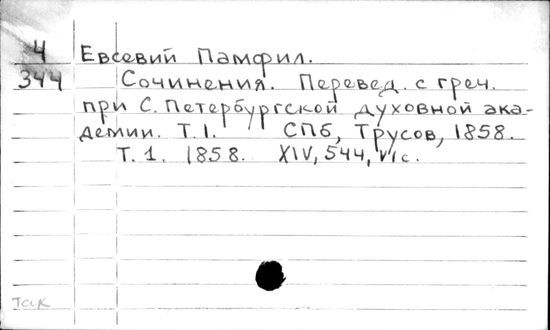 4 Евсевий Памфил.
344 Сочинения. Перевед. с греч.
при С. Петербургской духовной ака-
демии. Т. 1. СПб, Трусов, 1858.
Т. 1. 1858. XIV, 544, VI с.
Так